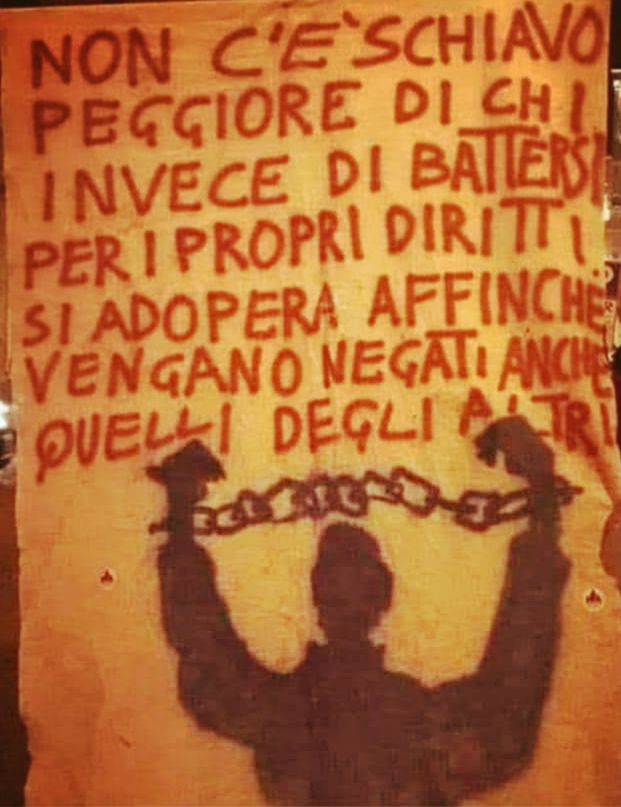 NON C'E' SCHIAVO
PEGGIORE DI CHI
INVECE DI BATTERSI
PER I PROPRI DIRITTI
SI ADOPERA AFFINCHÈ
VENGANO NEGATI ANCHE
QUELLI DEGLI ALTRI